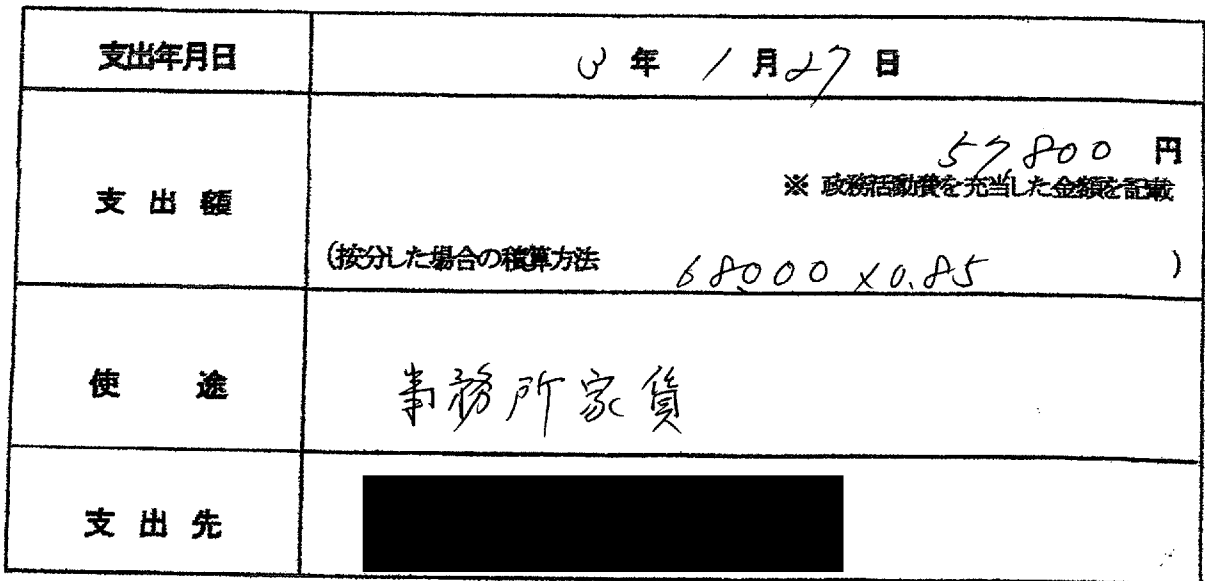 支出年月日 3年1月27日
57,800円
※ 政務活動費を充当した金額を記載
支出額
(按分した場合の積算方法 68,000×0.85)
使途 事務所家賃
支出先